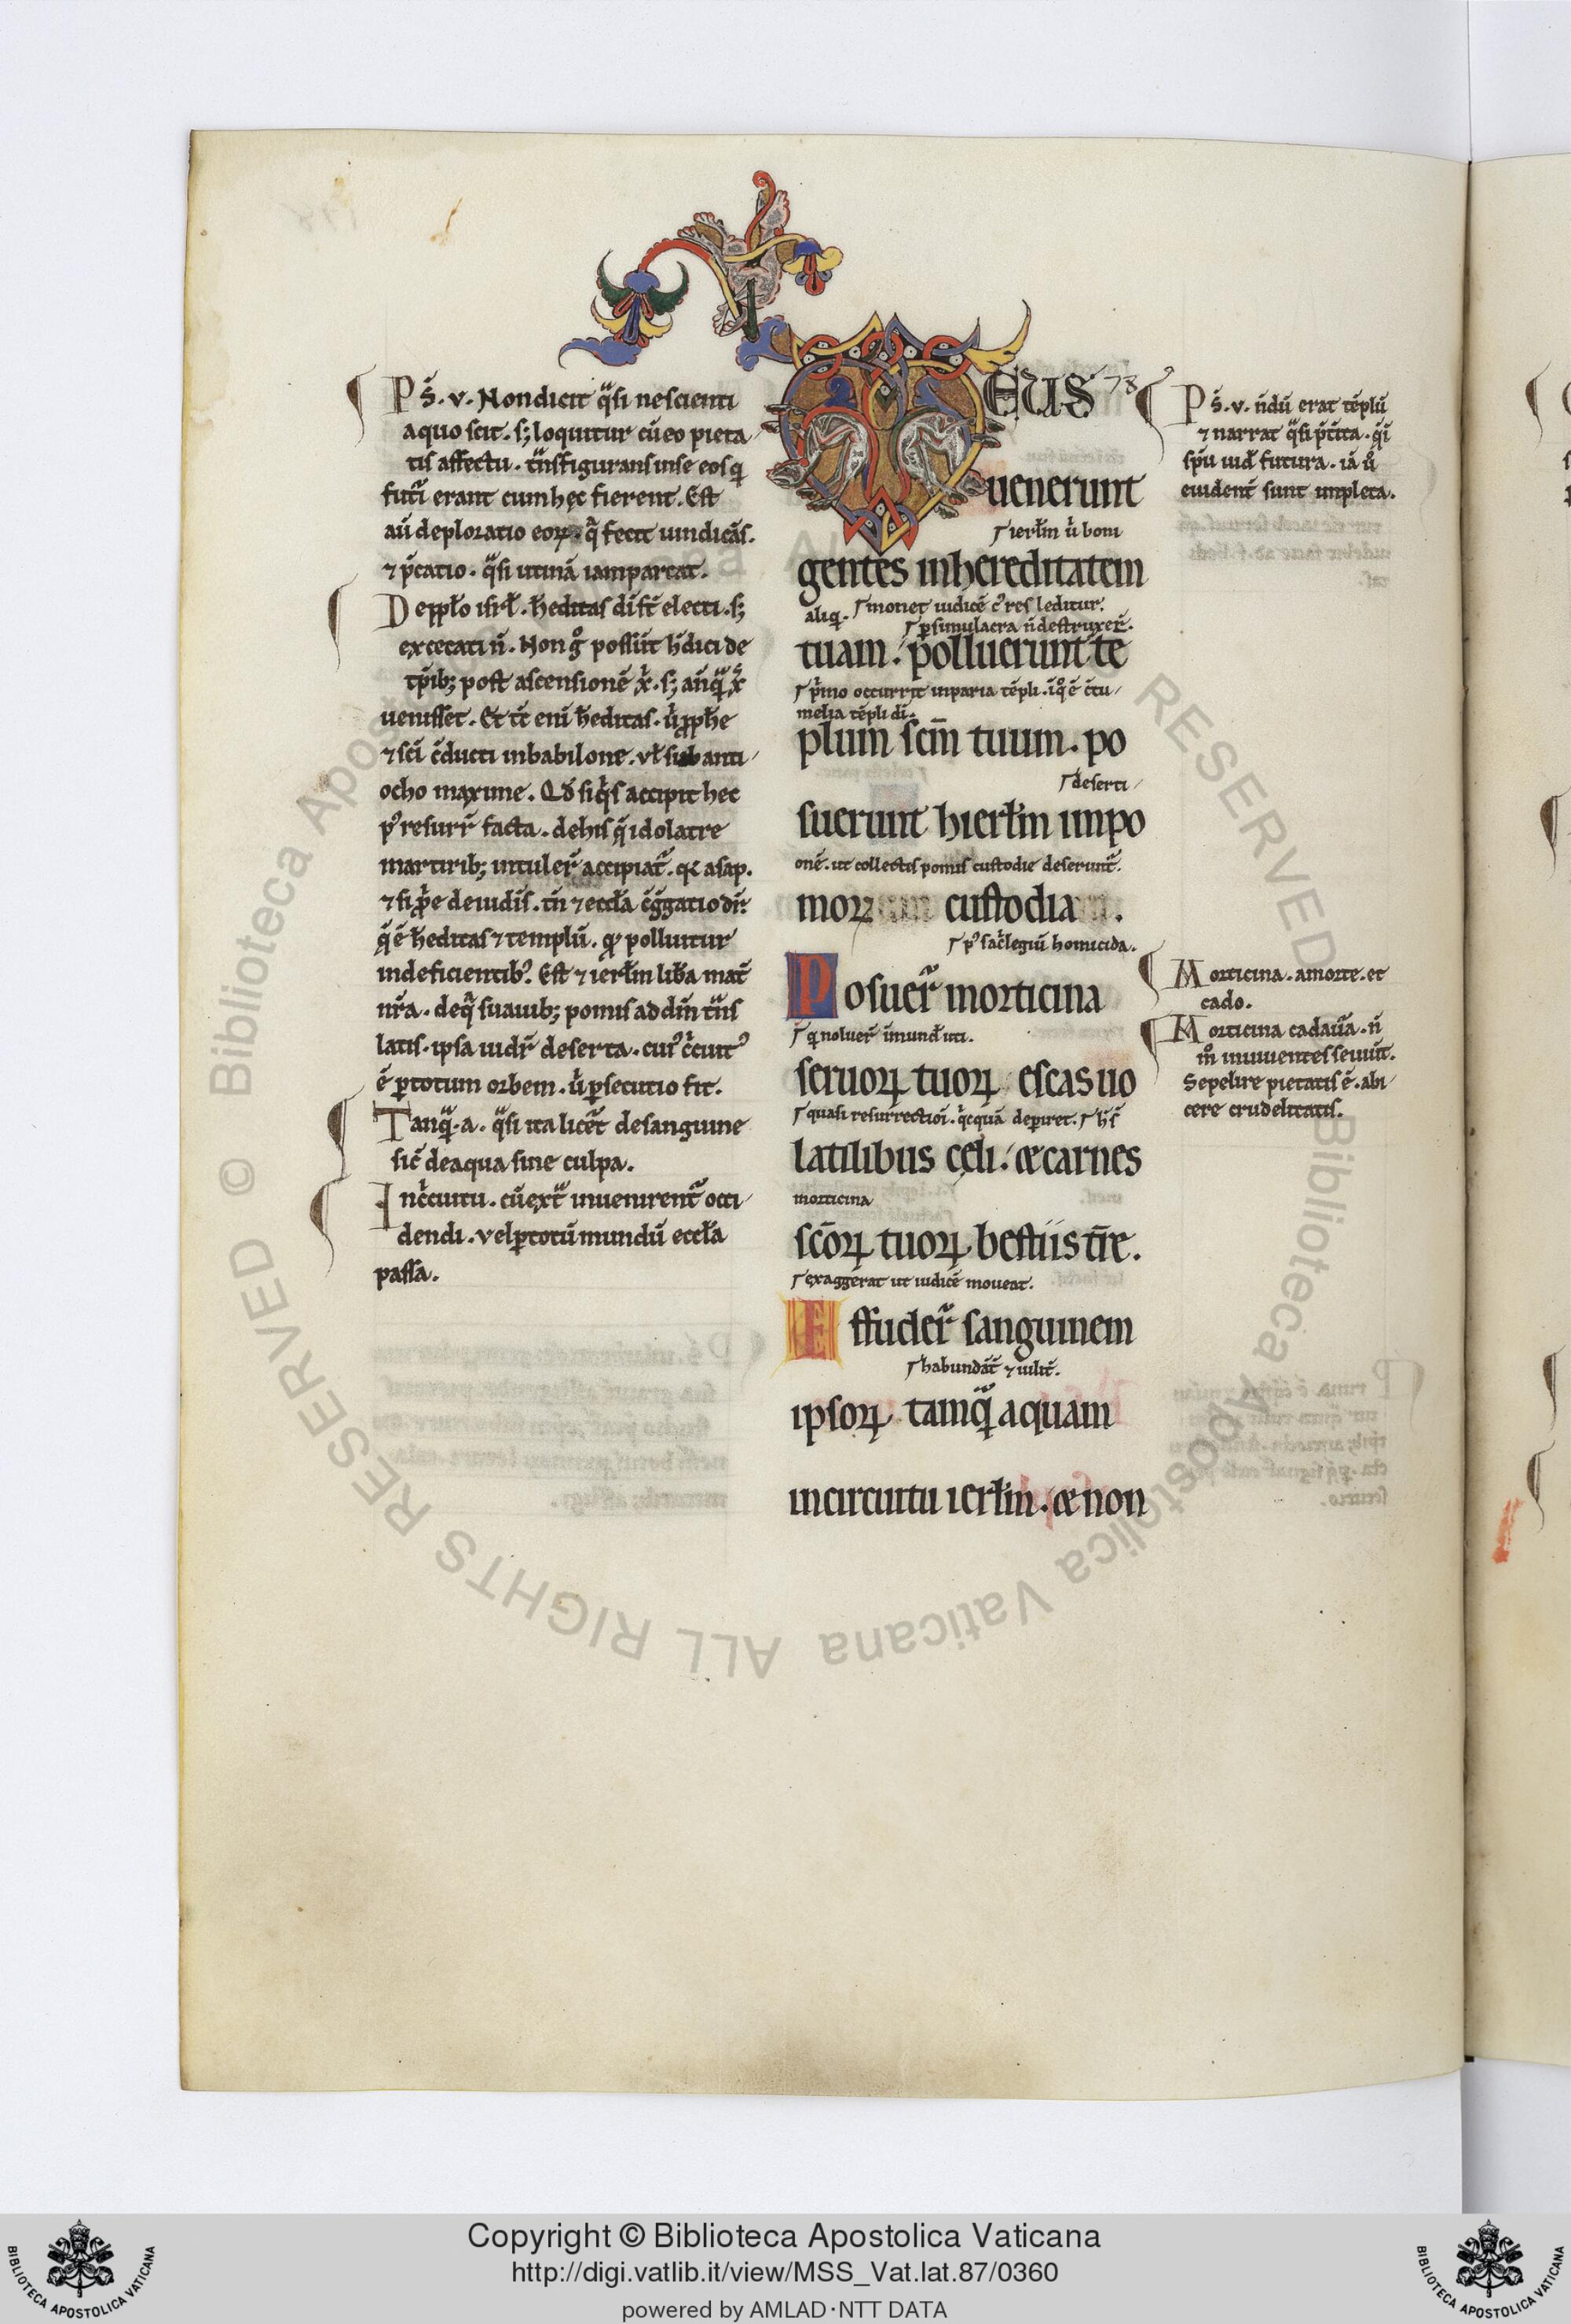 P S̄. v. Non dicit q̈si nescienti
a quo scit. s; loquitur cū eo pieta
tis affectu. t̄nsfigurans in se eos q̇
futi̇ erant cum hęc fierent. Est
aū deploratio eoꝝ. q̄ fecit uindicās.
⁊ p̄catio. q̈si utinā iam parcat.
De pp̄lo isrł. h̄editas di f̄t electi. s;
excecati ñ. Non g̊ possūt h̄ dici de
tp̄ib; post ascensionē x̄. s; anq̈ẍ
uenisset. Et t̄t eni h̄editas. ů p̄ph̄e
⁊ sc̄i c̄ducti in babilone. vł sub anti
ocho maxime. Qđ siq̇s accipit hec
p' resurr̄ facta. de his q̄ idolatre
martirib; intuler̄ accipiat̄. qꝛ asap.
⁊ si p̄pe de iudis̄. tn̄ ⁊ eccła c̄ḡgatio di:
q̄ ē h̄editas ⁊ templū. qꝫ polluitur
in deficientib'. Est ⁊ ierłm lib̄a mat̄
nr̄a. de q̄ suauib; pomis ad dn̄m t̄ns
latis. ipsa uidr̄ deserta. cui' c̄cuit'
ē ꝑ totum orbem. ů ꝑsecutio fit.
Tanq̈. a. q̈si ita licēt de sanguine
sic̄ de aqua sine culpa.
In c̄cuitu. cū ext̄ inuenirent̄ occi
dendi. vel ꝑ totū mundū eccła
passa.
DEUS 78
uenerunt
ierłm ů boni
gentes in hereditatem
aliq. monet iudicē c̓ res leditur.
ꝑ simulacra ñ destruxer̄.
tuam. polluerunt te
p̄mo occurrit iniuria tēpli. īq̊ ē c̄tu
melia tēpli di.
plum sc̄m tuum. po
deserti
suerunt hierłm in po
onē. ut collectis pomis custodie deserunt̄.
moꝝ custodia.
p' sac̄legiū homicida.
Posuer̄ morticina
q noluer̄ īmund uti.
seruoꝝ tuoꝝ escas uo
quasi resurrectioī. q̇cquā deperiret. h̄ s̄
latilibus cęli. & carnes
morticina
sc̄oꝝ tuoꝝ bestiis tr̄e.
exaggerat ut iudicē moueat.
Effuder̄ sanguinem
habundāt̄ ⁊ uilit̄.
ipsoꝝ tamq̈ aquam
in circuitu ierłm. & non
P S̄. v. n̄dū erat tēplū
⁊ narrat q̈si p̄t̄ita. q̄i
sp̄u uid futura. iā ů
euident̄ sunt impleta.
Morticina. a morte. et
cado.
Morticina cadaũa. n̄
m̊ in uiuentes seuiūt.
Sepelire pietatis ē. abi
cere crudelitatis.
© Biblioteca Apostolica Vaticana ALL RIGHTS RESERVED
Copyright © Biblioteca Apostolica Vaticana
http://digi.vatlib.it/view/MSS_Vat.lat.87/0360
powered by AMLAD·NTT DATA
BIBLIOTECA APOSTOLICA VATICANA
BIBLIOTECA APOSTOLICA VATICANA